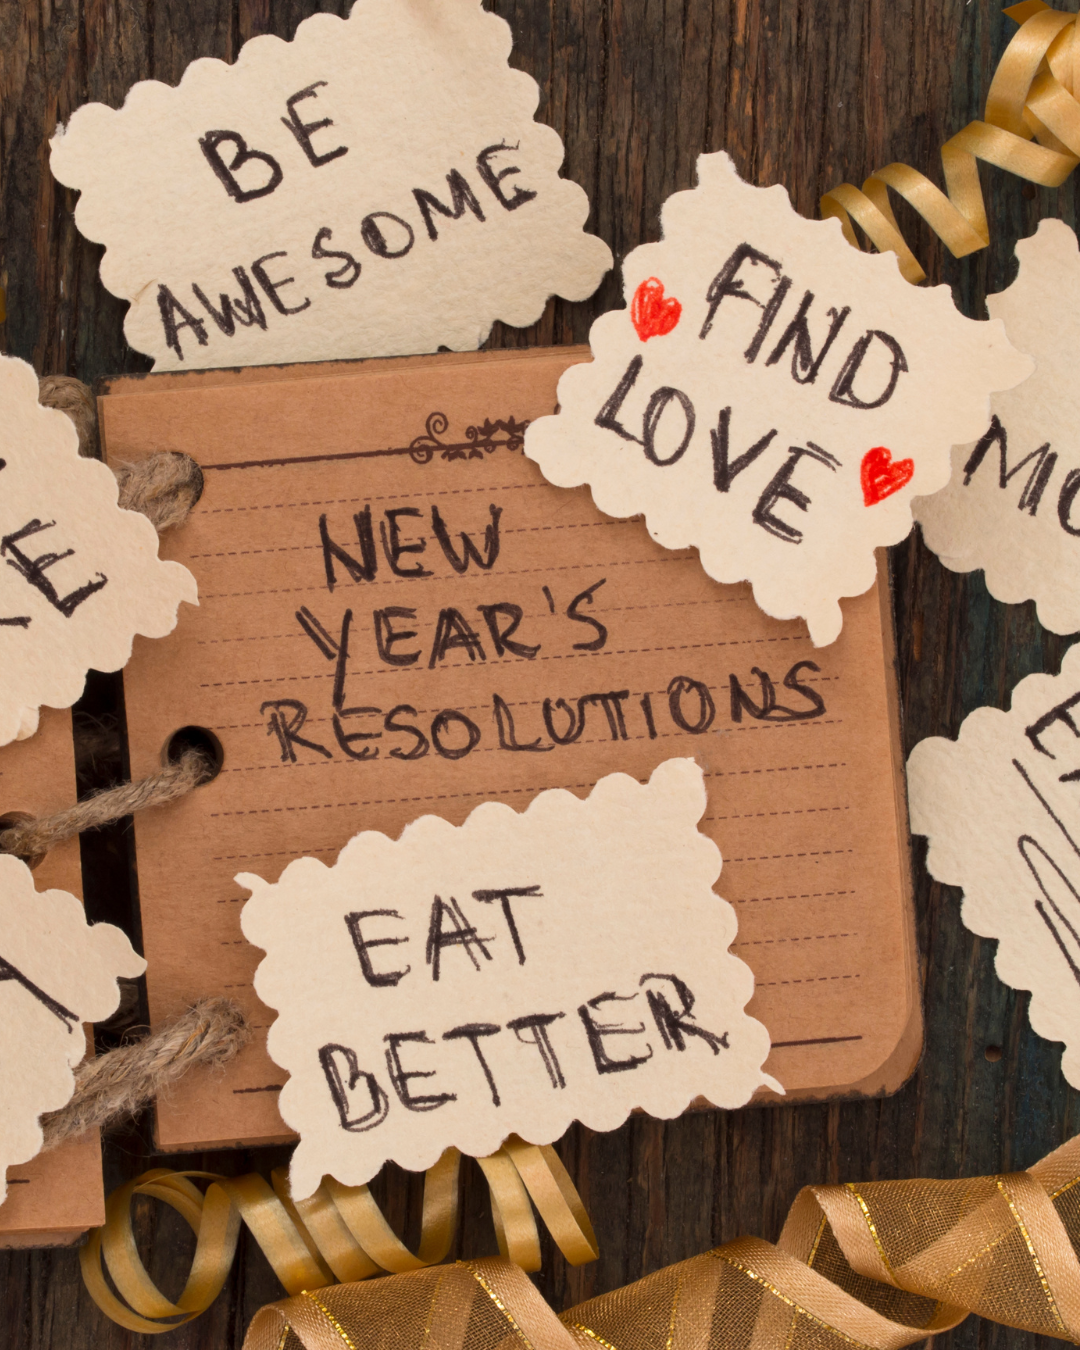 BE
AWESOME
FIND
LOVE
NEW
YEAR'S
RESOLUTIONS
EAT
BETTER